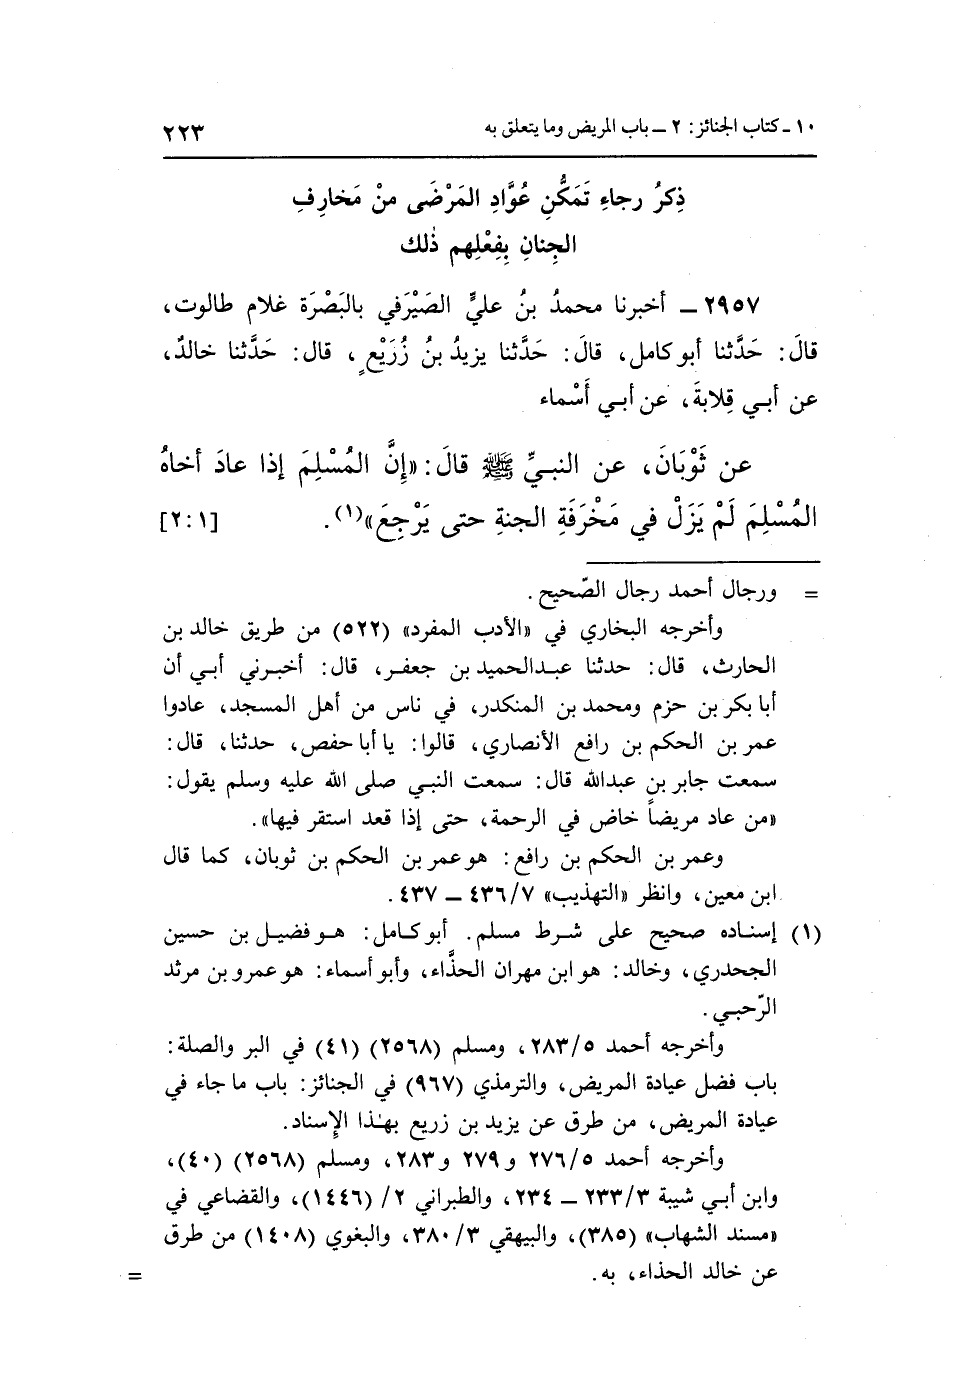 ١٠ ـ كتاب الجنائز: ٢ ـ باب المريض وما يتعلق به ٢٢٣
ذِكرُ رجاءِ تَمَكُّنِ عُوَّادِ المَرْضَى منْ مَخارِفِ
الجِنانِ بِفِعْلِهم ذٰلك
٢٩٥٧ ـ أخبرنا محمدُ بنُ عليٍّ الصَيْرَفي بالبَصْرَة غلام طالوت،
قالَ: حَدَّثنا أبو كامل، قالَ: حَدَّثنا يزيدُ بنُ زُرَيْعٍ، قال: حَدَّثنا خالدٌ،
عن أبي قِلابةَ، عن أبي أَسْماء
عن ثَوْبَانَ، عن النبيِّ ﷺ قالَ: «إنَّ المُسْلِمَ إذا عادَ أخاهُ
المُسْلِمَ لَمْ يَزَلْ في مَخْرَفَةِ الجنةِ حتى يَرْجِعَ»(١). [٢:١]
= ورجال أحمد رجال الصّحيح.
وأخرجه البخاري في «الأدب المفرد» (٥٢٢) من طريق خالد بن
الحارث، قال: حدثنا عبدالحميد بن جعفر، قال: أخبرني أبي أن
أبا بكر بن حزم ومحمد بن المنكدر، في ناس من أهل المسجد، عادوا
عمر بن الحكم بن رافع الأنصاري، قالوا: يا أبا حفص، حدثنا، قال:
سمعت جابر بن عبدالله قال: سمعت النبي صلى الله عليه وسلم يقول:
«من عاد مريضاً خاض في الرحمة، حتى إذا قعد استقر فيها».
وعمر بن الحكم بن رافع: هو عمر بن الحكم بن ثوبان، كما قال
ابن معين، وانظر «التهذيب» ٤٣٦/٧ ـ ٤٣٧.
(١) إسناده صحيح على شرط مسلم. أبو كامل: هو فضيل بن حسين
الجحدري، وخالد: هو ابن مهران الحذَّاء، وأبو أسماء: هو عمرو بن مرثد
الرّحبي.
وأخرجه أحمد ٢٨٣/٥، ومسلم (٢٥٦٨) (٤١) في البر والصلة:
باب فضل عيادة المريض، والترمذي (٩٦٧) في الجنائز: باب ما جاء في
عيادة المريض، من طرق عن يزيد بن زريع بهٰذا الإسناد.
وأخرجه أحمد ٢٧٦/٥ و ٢٧٩ و ٢٨٣، ومسلم (٢٥٦٨) (٤٠)،
وابن أبي شيبة ٢٣٣/٣ ـ ٢٣٤، والطبراني ٢/ (١٤٤٦)، والقضاعي في
«مسند الشهاب» (٣٨٥)، والبيهقي ٣٨٠/٣، والبغوي (١٤٠٨) من طرق
عن خالد الحذاء، به. =